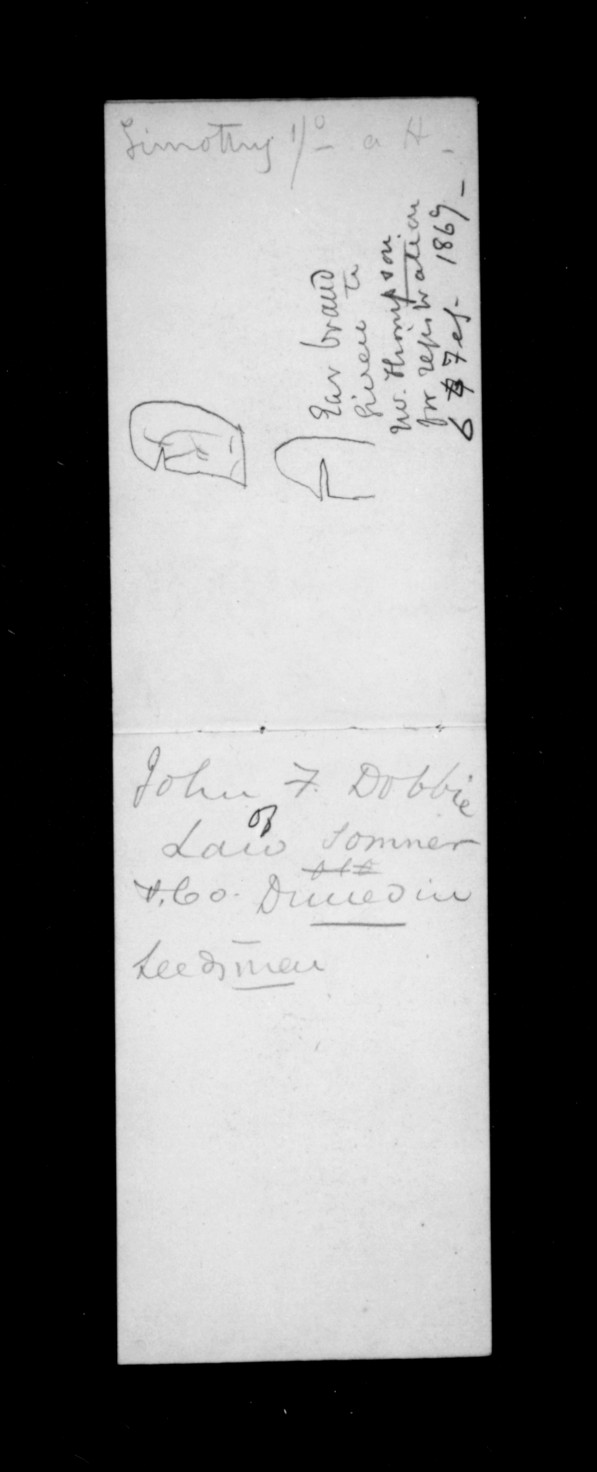 Timothy 1/0 a H -
Ear brand
given to
W. Thompson.
for registration
6 Feb. 1869 -
John F. Dobbie
of
Law Somner
& Co. Dunedin
Seedsmen